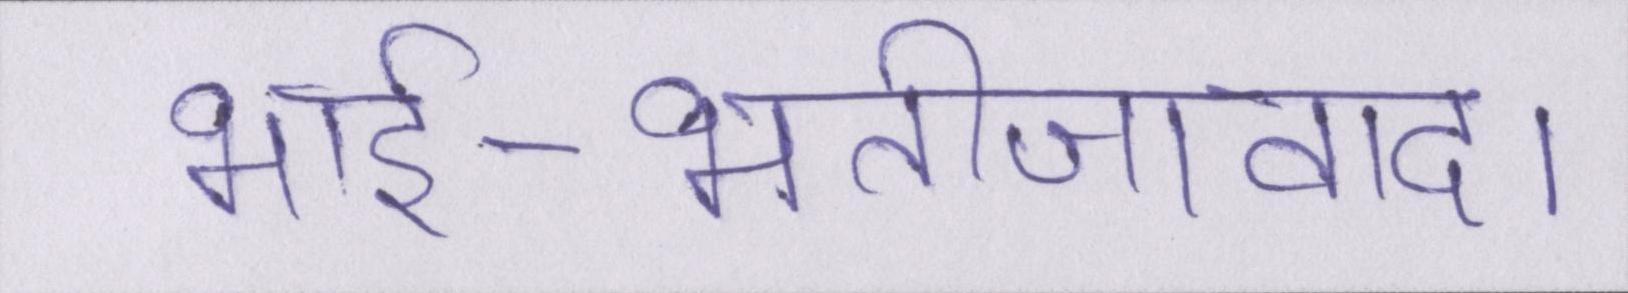 भाई-भतीजावाद।